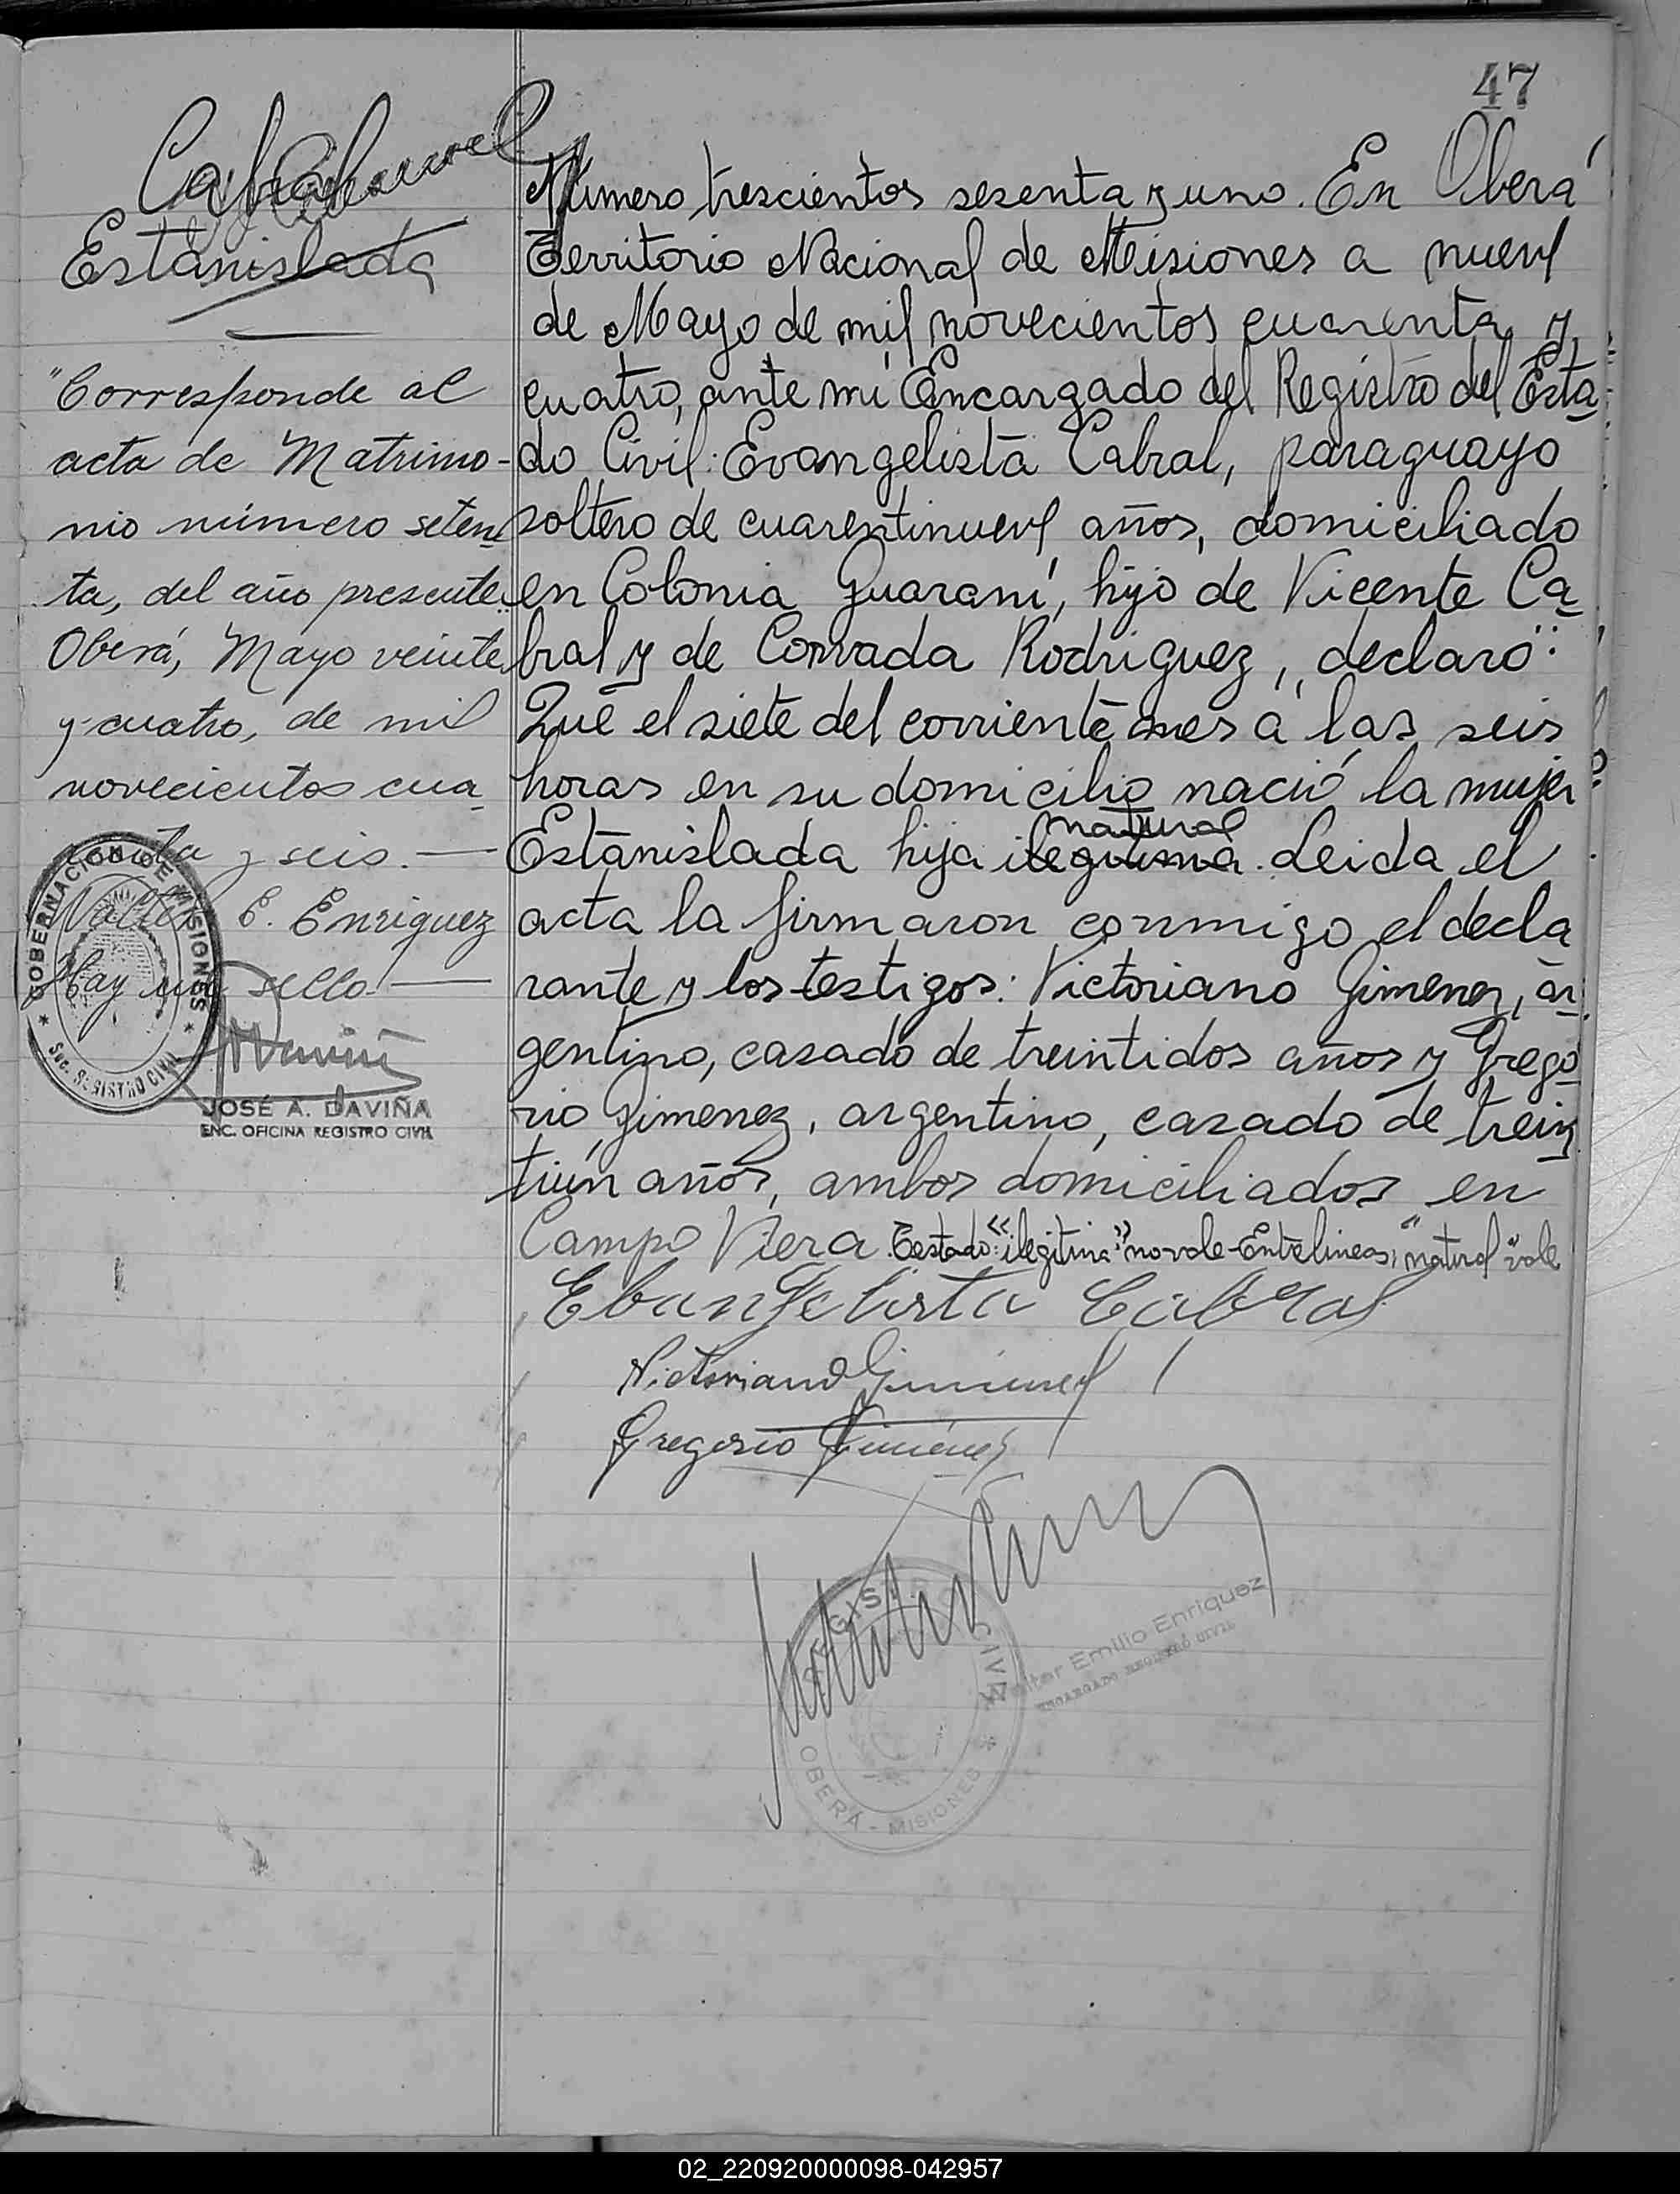 47
Cabral
Estanislada
"Corresponde al
acta de Matrimo-
nio número seten
ta, del año presente.
Oberá, Mayo veinte
y cuatro, de mil
novecientos cua
renta y seis. —
Walter E. Enriquez
Hay un sello —
GOBERNACION DE MISIONES
Sec. REGISTRO CIVIL
JOSÉ A. DAVIÑA
ENC. OFICINA REGISTRO CIVIL
Número trescientos sesenta y uno. En Oberá
Territorio Nacional de Misiones a nueve
de Mayo de mil novecientos cuarenta y
cuatro, ante mí Encargado del Registro del Esta
do Civil: Evangelista Cabral, paraguayo
soltero de cuarentinueve años, domiciliado
en Colonia Guaraní, hijo de Vicente Ca
bral y de Conrada Rodriguez, declaró:
Que el siete del corriente mes a las seis
horas en su domicilio nació la mujer
natural
Estanislada hija ilegitima. Leida el
acta la firmaron conmigo el decla
rante y los testigos: Victoriano Gimenez, ar
gentino, casado de treintidos años y Grego
rio Gimenez, argentino, casado de trein
tiún años, ambos domiciliados en
Campo Viera. Testado: "ilegitima" no vale - Entrelineas, "natural" vale
Ebangelista Cabral
Victoriano Gimenez
Gregorio Giménez
REGIST CIVIL
OBERÁ - MISIONES
Walter Emilio Enriquez
ENCARGADO REGISTRO CIVIL
02_220920000098-042957